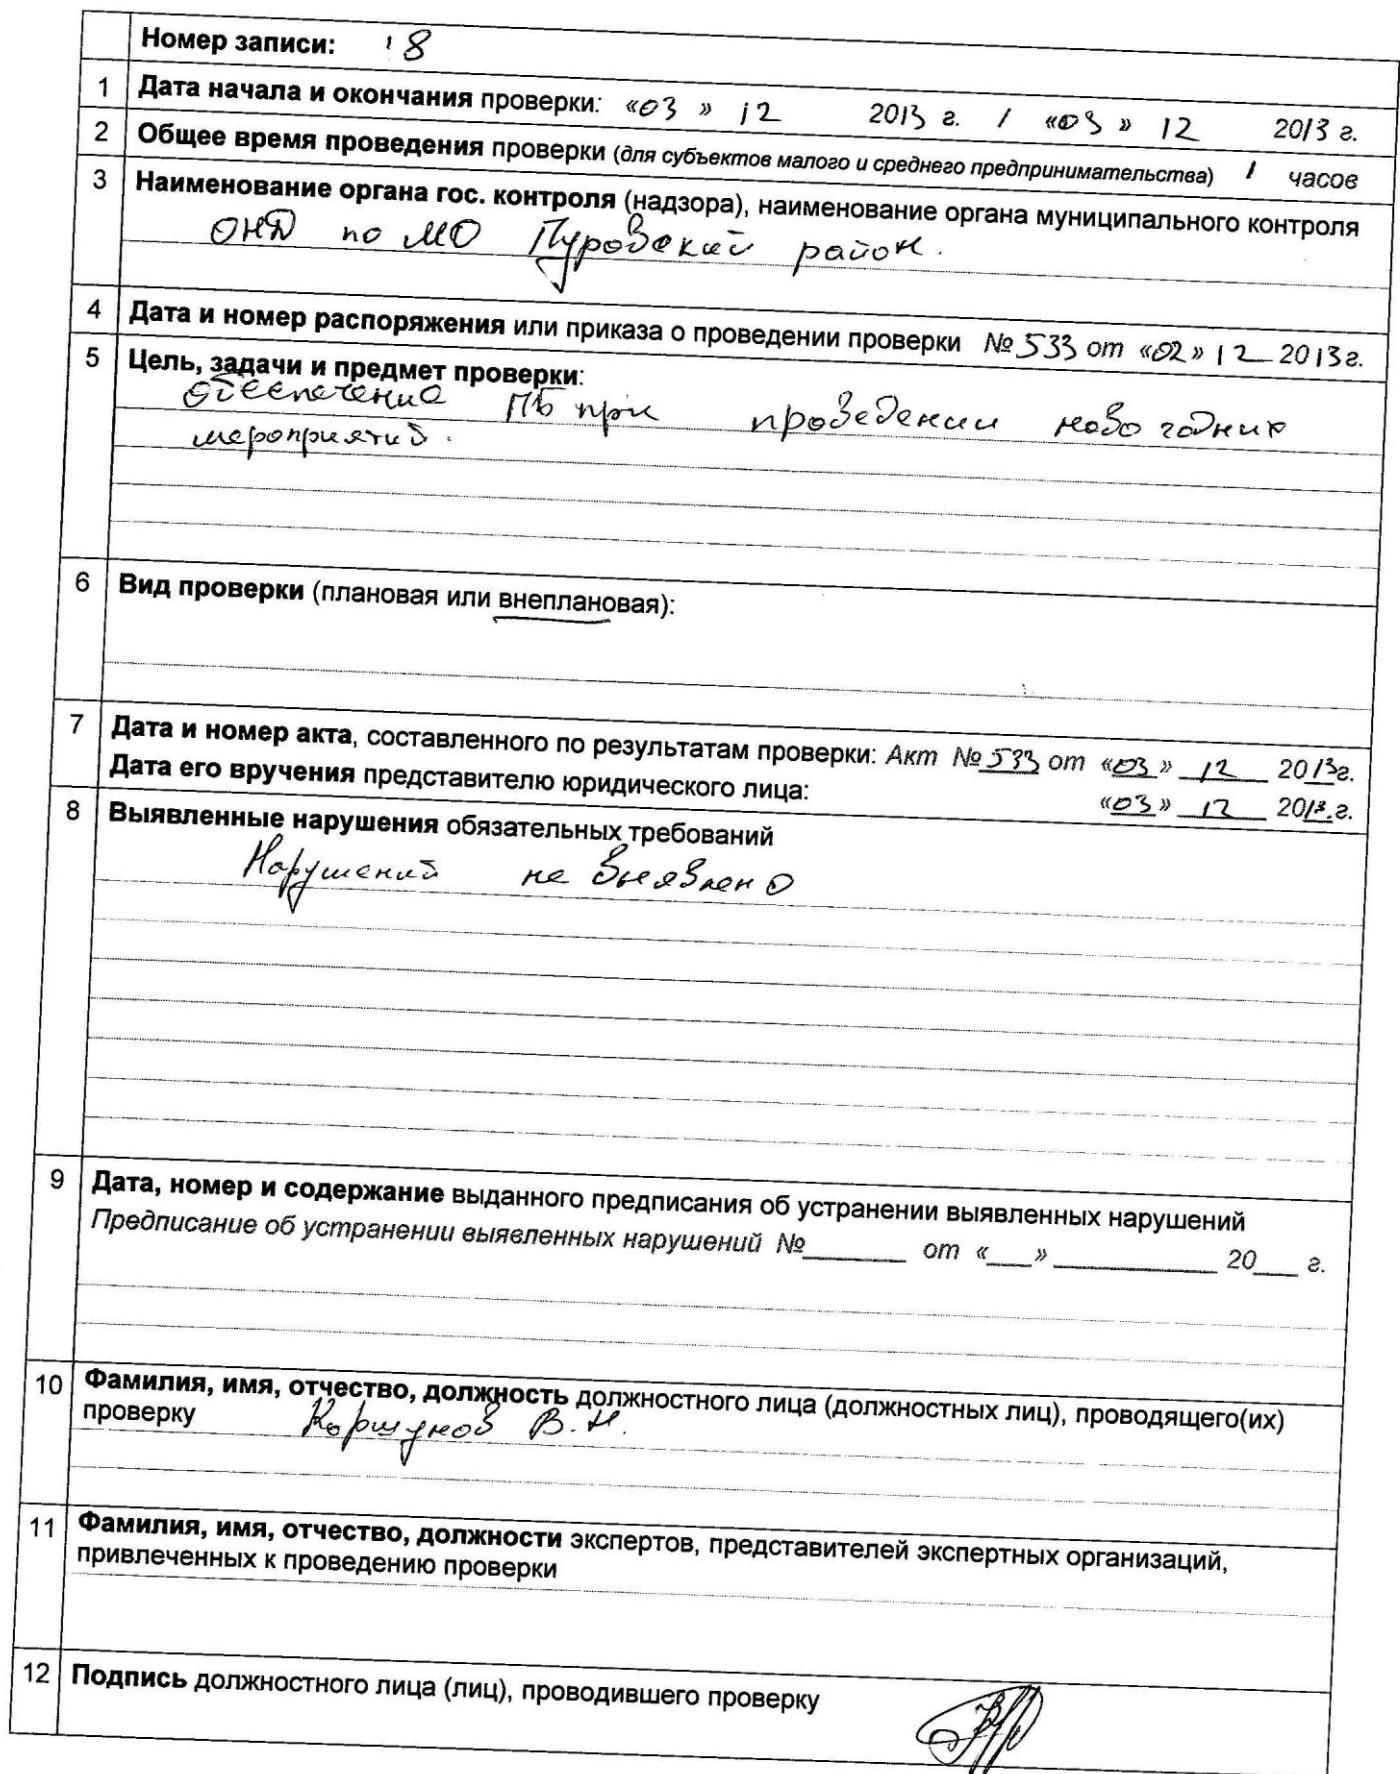 Номер записи: 8
1 Дата начала и окончания проверки: «03» 12 2013 г. / «03» 12 2013 г.
2 Общее время проведения проверки (для субъектов малого и среднего предпринимательства) 1 часов
3 Наименование органа гос. контроля (надзора), наименование органа муниципального контроля
ОНД по МО Пуровский район.
4 Дата и номер распоряжения или приказа о проведении проверки № 533 от «02» 12 2013г.
5 Цель, задачи и предмет проверки:
обеспечение ПБ при проведении новогодних
мероприятий.
6 Вид проверки (плановая или внеплановая):
7 Дата и номер акта, составленного по результатам проверки: Акт № 533 от «03» 12 2013г.
Дата его вручения представителю юридического лица: «03» 12 2013.г.
8 Выявленные нарушения обязательных требований
Нарушений не выявлено
9 Дата, номер и содержание выданного предписания об устранении выявленных нарушений
Предписание об устранении выявленных нарушений №_______ от «___» ___________ 20___ г.
10 Фамилия, имя, отчество, должность должностного лица (должностных лиц), проводящего(их)
проверку Коршунов В.Н.
11 Фамилия, имя, отчество, должности экспертов, представителей экспертных организаций,
привлеченных к проведению проверки
12 Подпись должностного лица (лиц), проводившего проверку